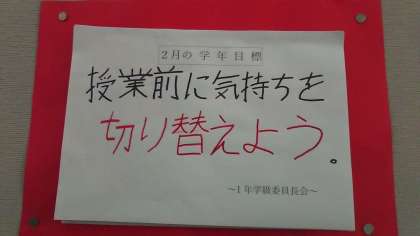 2月の学年目標
授業前に気持ちを
切り替えよう。
～1年学級委員長会～